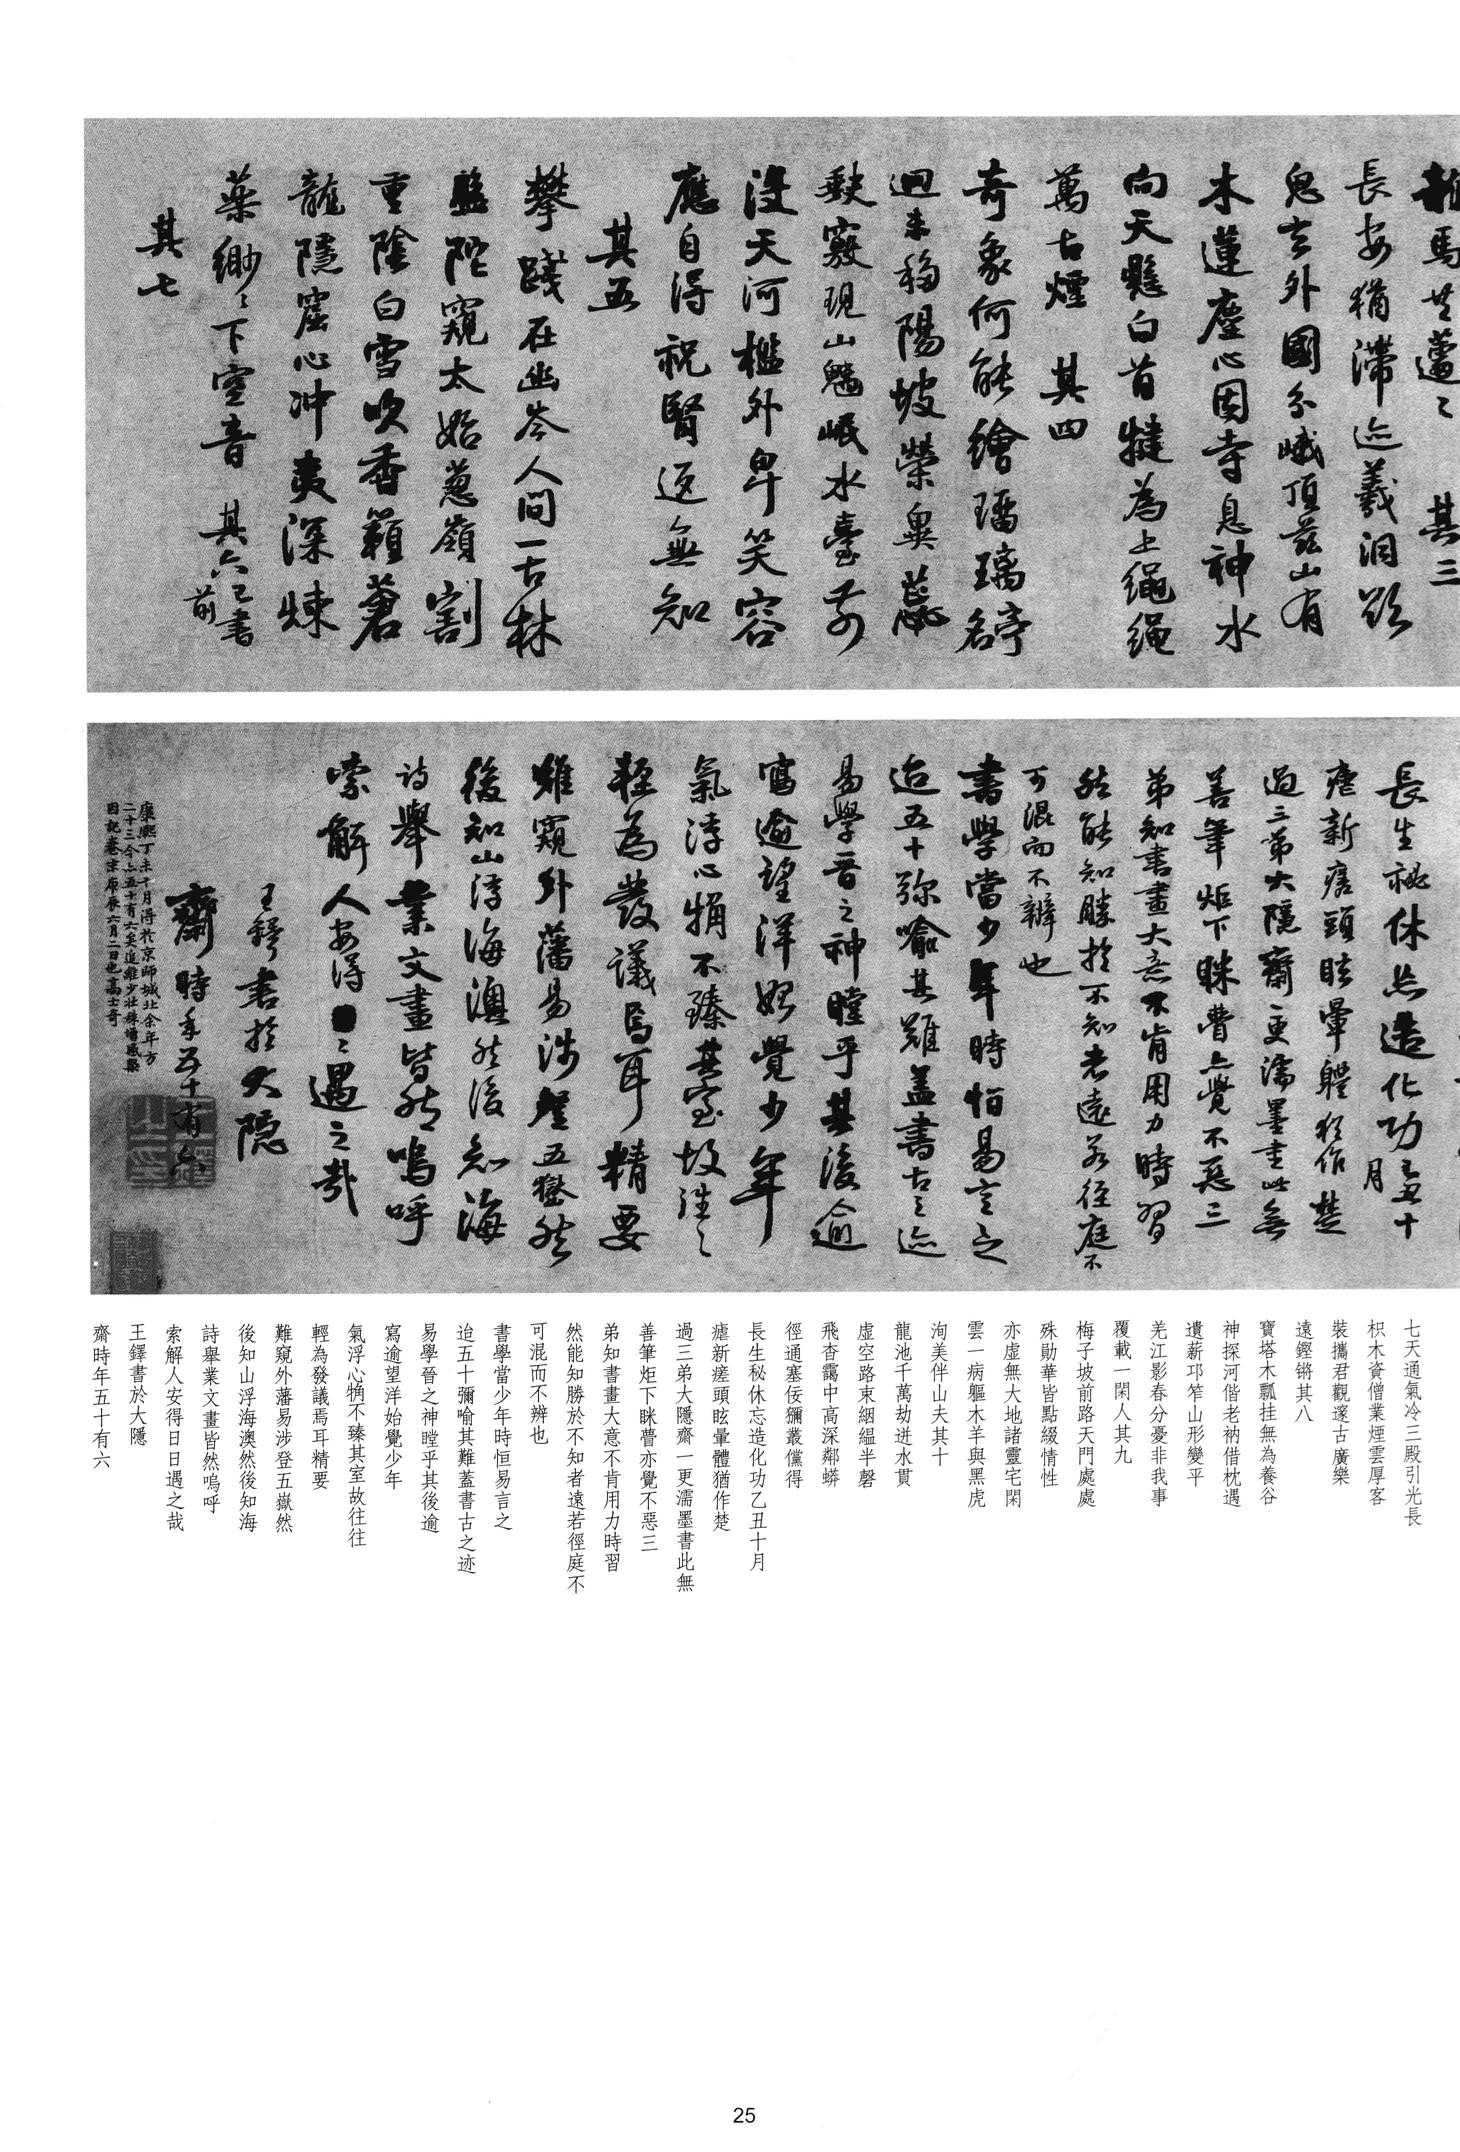 長安猶滯迹羲洞歎
鬼玄外國分峨頂茲山有
木蓮塵心因寺息神水
向天懸白首犍為上繩繩
萬古煙 其四
奇象何能繪璠璃亭名
迴未移陽坡榮異蕊
歎竅現山魑岷水臺前
沒天河檻外卑笑容
應自得祝腎返無知
其五
攀踐在幽岑人間一古林
監陀窺太始蔥嶺割
重陰白雪吹香籟蒼
龍隱窟心冲夷深煉
藥緲緲下空音 其六已書前
其七
長生秘休忘造化功乙丑十月
瘧新瘥頭眩暈體猶作楚
過三弟大隱齋一更濡墨書此無
善筆炬下眯瞢亦覺不惡三
弟知書畫大意不肯用力時習
然能知勝於不知者遠若徑庭不
可混而不辨也
書學當少年時恒易言之
迨五十彌喻其難蓋書古之迹
易學晉之神瞠乎其後逾
寫逾望洋始覺少年
氣浮心觕不臻其室故往往
輕為發議焉耳精要
難窺外藩易涉登五嶽然
後知山浮海澳然後知海
詩舉業文畫皆然嗚呼
索解人安得日日遇之哉
王鐸書於大隱
齋時年五十有六
康熙丁未十月得於京師城北余年方
二十三今六五十有六矣追維少壯殊增感槩
因記卷末庚辰六月二日也高士奇
七天通氣冷三殿引光長
枳木資僧業煙雲厚客
裝攜君觀邃古廣樂
遠鏗鏘其八
寶塔木瓢挂無為養谷
神探河偕老衲借枕遇
遺薪邛笮山形變平
羌江影春分憂非我事
覆載一閑人其九
梅子坡前路天門處處
殊勛華皆點綴情性
亦虛無大地諸靈宅閑
雲一病軀木羊與黑虎
洵美伴山夫其十
龍池千萬劫迸水貫
虛空路束絪緼半磬
飛杳靄中高深鄰蟒
徑通塞佞獼叢儻得
長生秘休忘造化功乙丑十月
瘧新瘥頭眩暈體猶作楚
過三弟大隱齋一更濡墨書此無
善筆炬下眯瞢亦覺不惡三
弟知書畫大意不肯用力時習
然能知勝於不知者遠若徑庭不
可混而不辨也
書學當少年時恒易言之
迨五十彌喻其難蓋書古之迹
易學晉之神瞠乎其後逾
寫逾望洋始覺少年
氣浮心觕不臻其室故往往
輕為發議焉耳精要
難窺外藩易涉登五嶽然
後知山浮海澳然後知海
詩舉業文畫皆然嗚呼
索解人安得日日遇之哉
王鐸書於大隱
齋時年五十有六
25